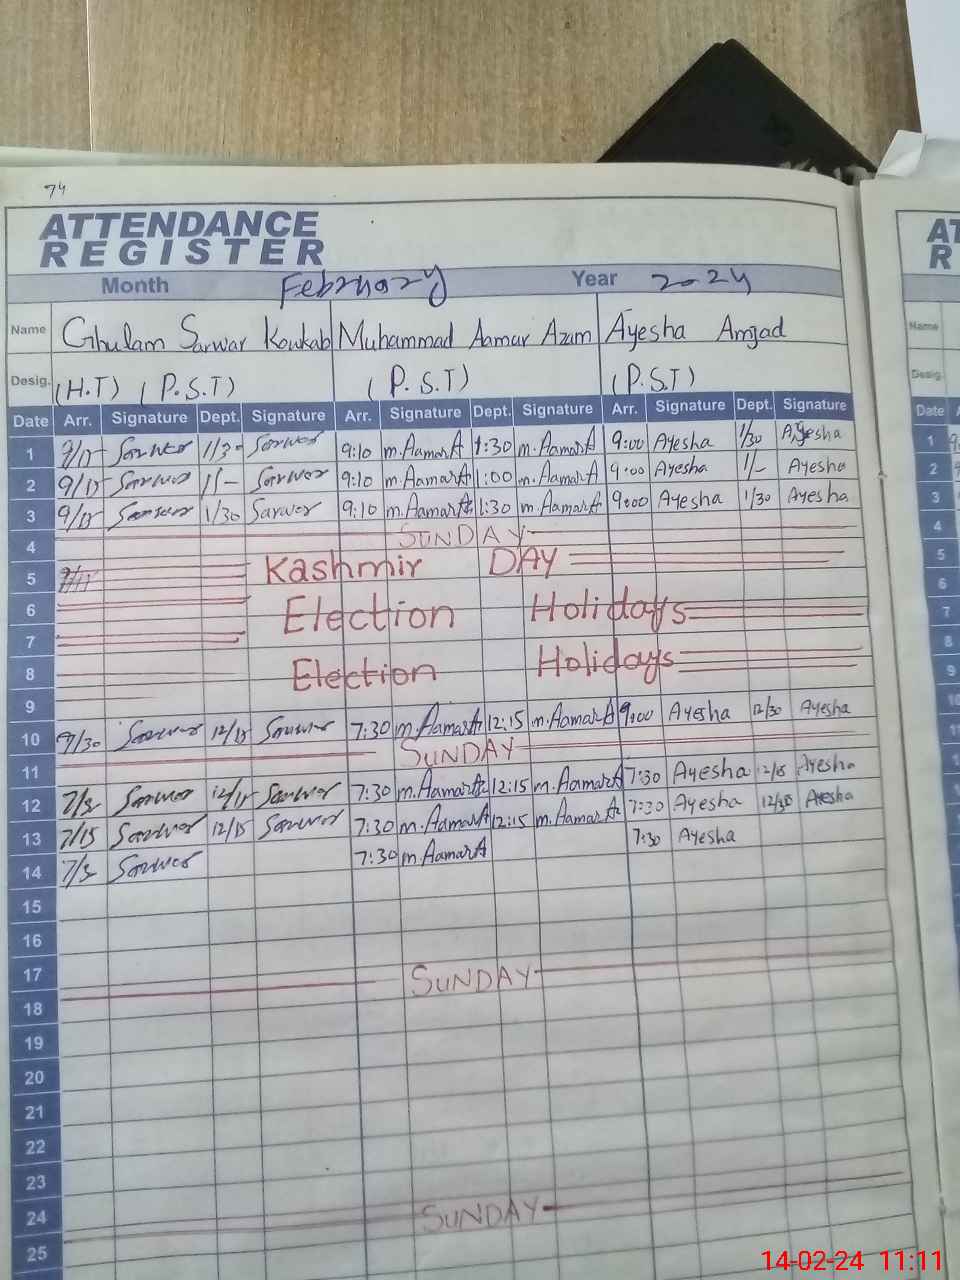 74
ATTENDANCE
REGISTER
Month February Year 2024
Name Ghulam Sarwar Koukab Muhammad Aamar Azam Ayesha Amjad
Desig. (H.T) (P.S.T) (P.S.T) (P.S.T)
Date Arr. Signature Dept. Signature Arr. Signature Dept. Signature Arr. Signature Dept. Signature
1 9/15 Sarwar 1/30 Sarwar 9:10 m.AamarA 1:30 m.AamarA 9:00 Ayesha 1/30 Ayesha
2 9/15 Sarwar 1/- Sarwar 9:10 m.AamarA 1:00 m.AamarA 9:00 Ayesha 1/- Ayesha
3 9/15 Sarwar 1/30 Sarwar 9:10 m.AamarA 1:30 m.AamarA 9:00 Ayesha 1/30 Ayesha
4 SUNDAY
5 Kashmir DAY
6 Election Holidays
7
8 Election Holidays
9
10 9/30 Sarwar 12/15 Sarwar 7:30 m.AamarA 12:15 m.AamarA 9:00 Ayesha 12/30 Ayesha
11 SUNDAY
12 7/3 Sarwar 12/15 Sarwar 7:30 m.AamarA 12:15 m.AamarA 7:30 Ayesha 12/15 Ayesha
13 7/15 Sarwar 12/15 Sarwar 7:30 m.AamarA 12:15 m.AamarA 7:30 Ayesha 12/30 Ayesha
14 7/3 Sarwar 7:30 m.AamarA 7:30 Ayesha
15
16
17 SUNDAY
18
19
20
21
22
23
24 SUNDAY
25
AT
R
Name
Desig.
Date
1
2
3
4
5
6
7
8
9
10
11
14-02-24 11:11